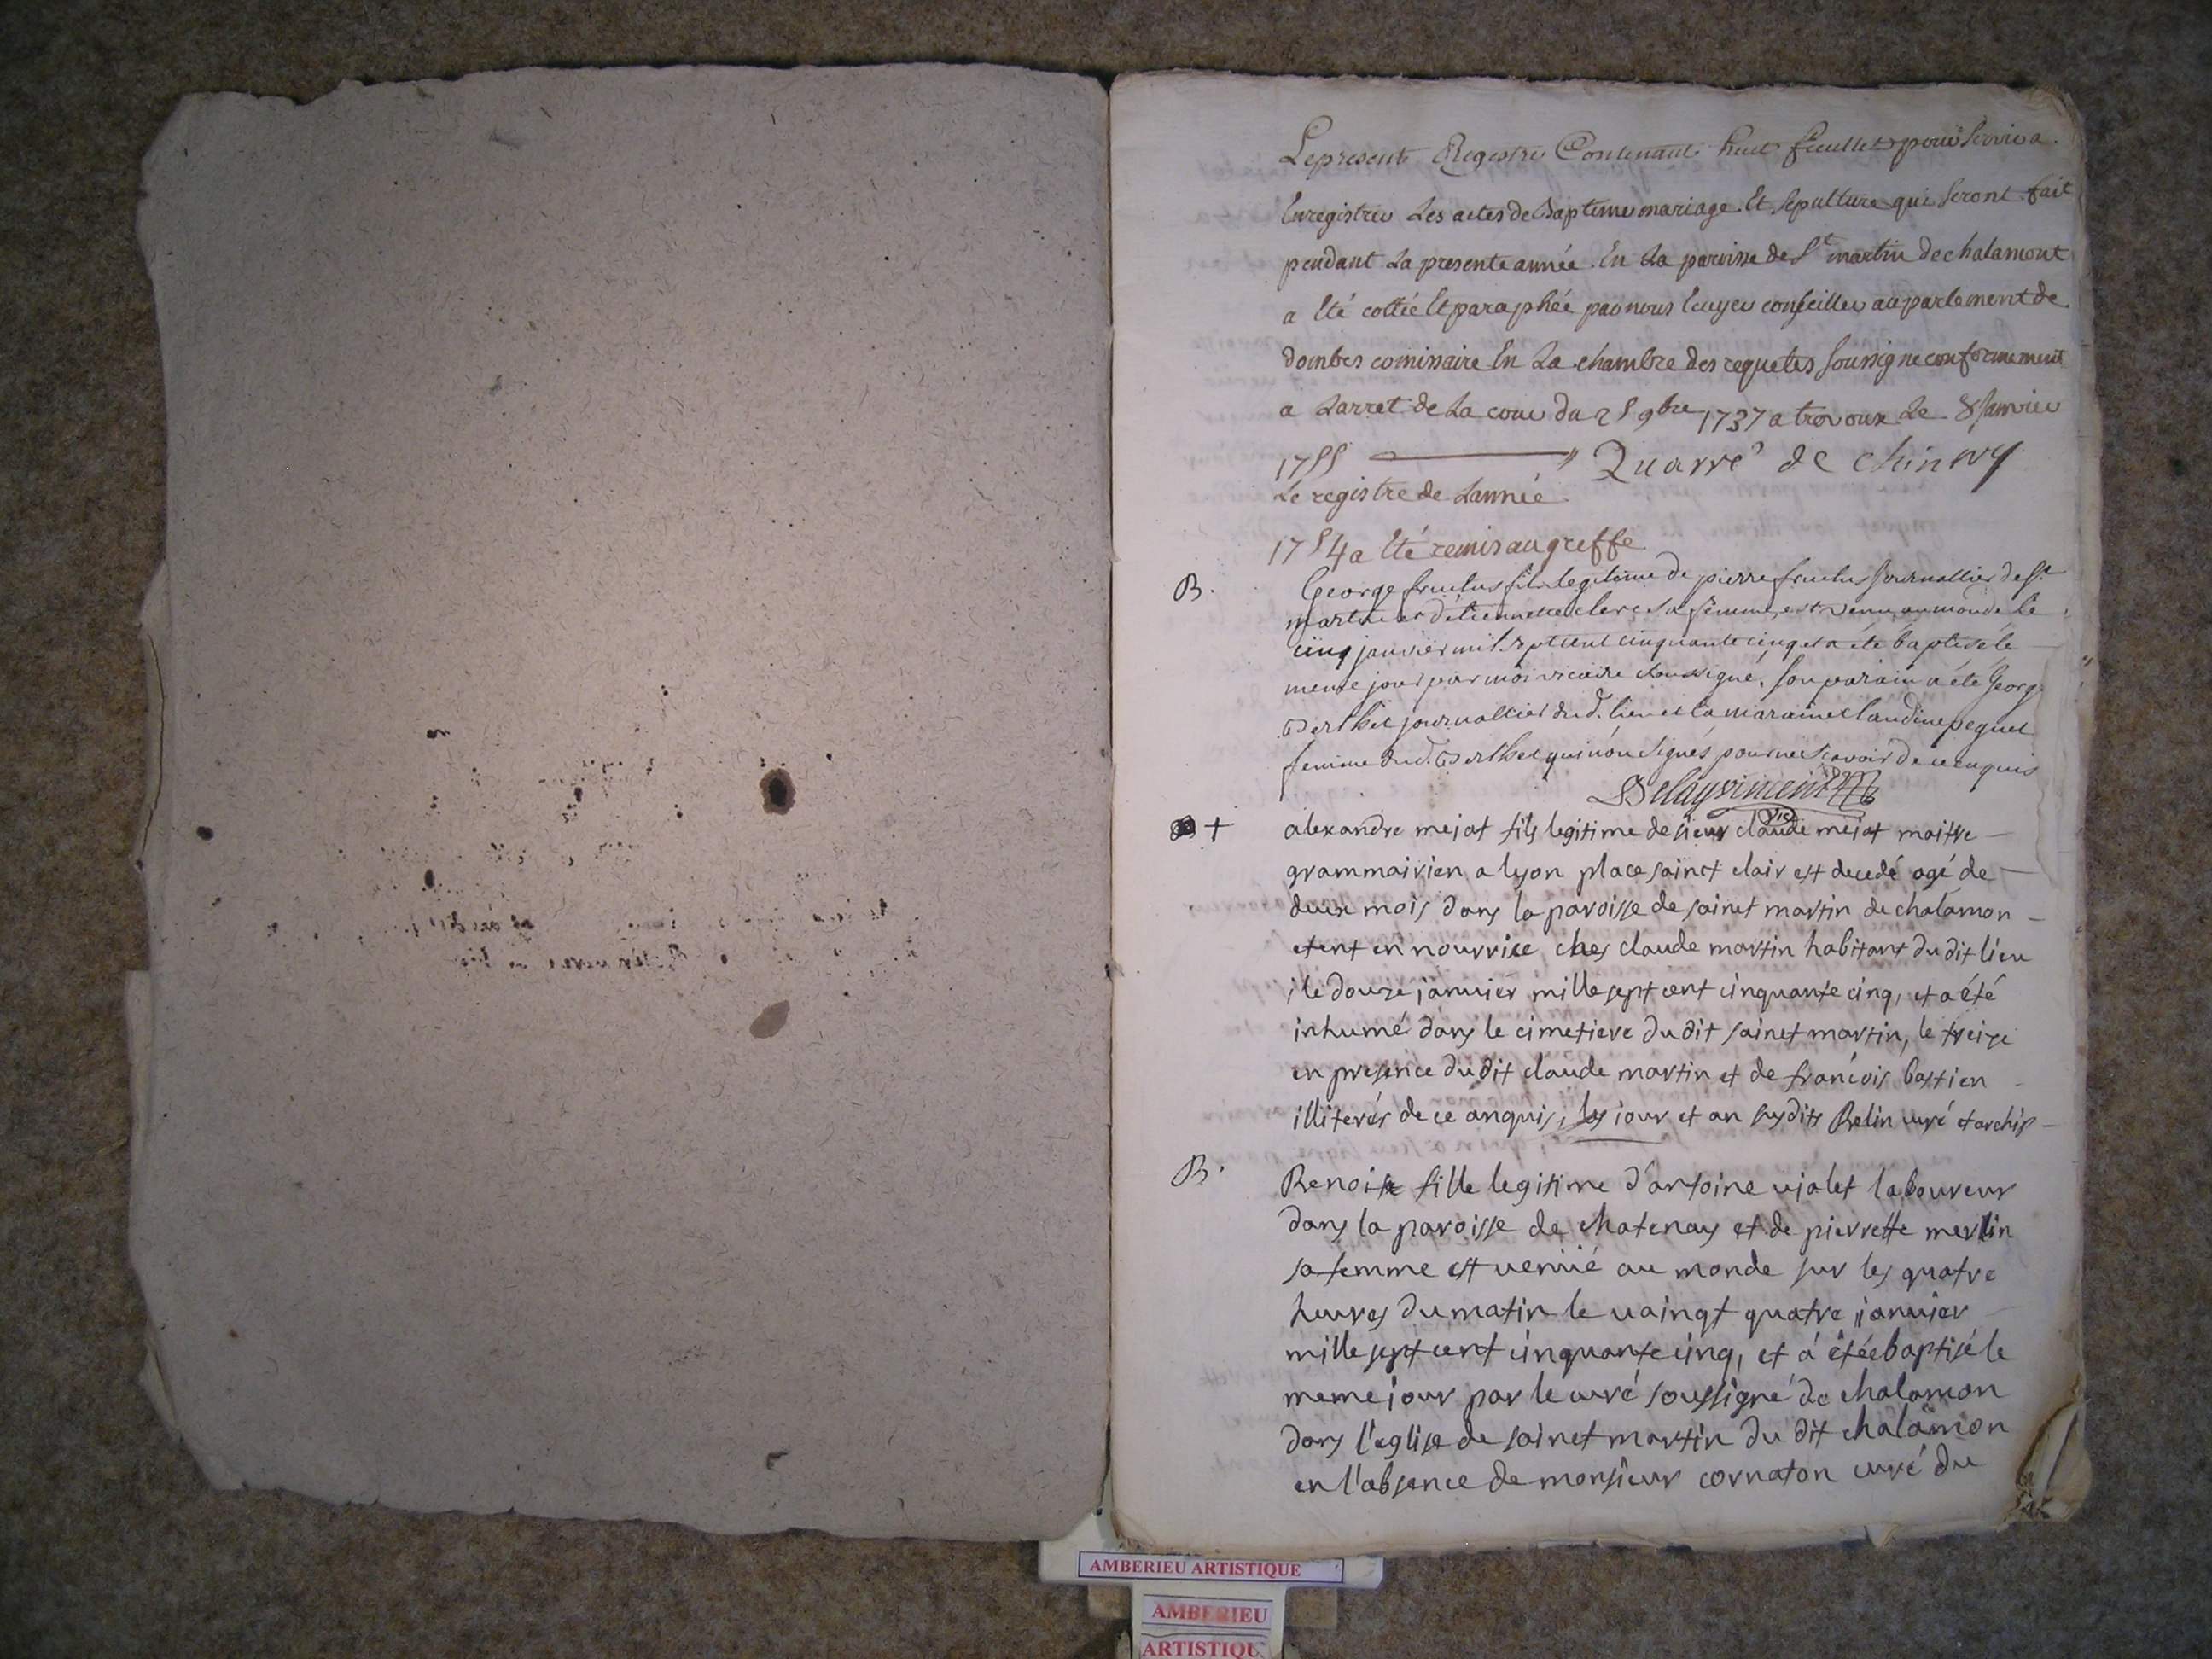 Le present Registre Contenant huit feuillets pour servir a
Enregistrer Les actes de Baptême mariage Et sepulture qui seront fait
pendant La presente année En La paroisse de St martin de chalamont
a Eté cottée Et paraphée par nous Ecuyer conseiller au parlement de
dombes comissaire En La chambre des requetes soussigné conformement
a Larret de La cour du 25 9bre 1737 a trevoux Le 8 Janvier
1755 Quarré de chinery
Le registre de Lannée
1754 a Eté remis au greffe
B. George fructus fils legitime de pierre fructus journallier de St
martin et d'étiennette clerc sa femme, est venu au monde le
cinq janvier mil sept cent cinquante cinq et a été baptisé le
meme jour par moi vicaire soussigné, son parain a été George
Berthet journallier dud. lieu et la maraine claudine peguet
femme dud. Berthet qui n'ont signés pour ne scavoir de ce enquis
Delayvincent
vic
+ alexandre mejat fils legitime de sieur claude mejat maitre
grammairien a lyon place sainct clair est decedé agé de
deux mois dans la paroisse de sainct martin de chalamon
etent en nourrice ches claude martin habitant du dit lieu
le douze janvier mille sept cent cinquante cinq, et a été
inhumé dans le cimetiere du dit sainct martin, le treize
en presence du dit claude martin et de francois bastien
illiterés de ce anquis, les jour et an susdits Belin curé et archip
B. Benoite fille legitime d'antoine vialet laboureur
dans la paroisse de chatenay et de pierrette merlin
sa femme est venüe au monde sur les quatre
heures du matin le vaingt quatre janvier
mille sept cent cinquante cinq, et á étée baptisé le
meme jour par le curé soussigné de chalamon
dans l'eglise de sainct martin du dit chalamon
en l'absence de monsieur cornaton curé du
AMBERIEU ARTISTIQUE
AMBERIEU
ARTISTIQU